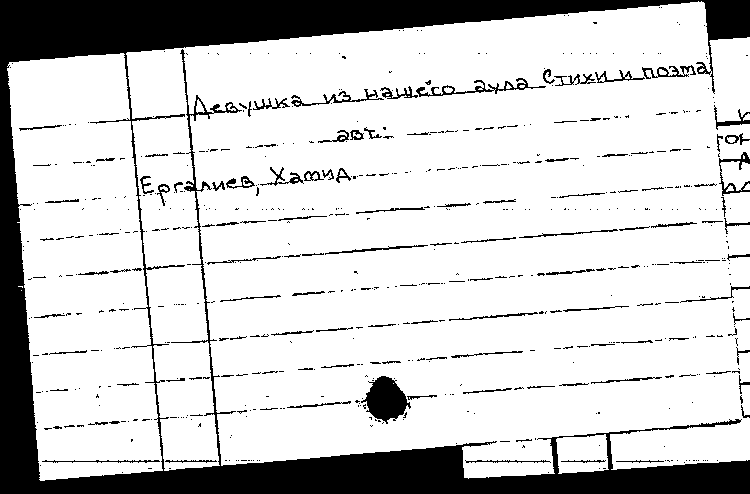 Девушка из нашего аула Стихи и поэма
авт.:
Ергалиев, Хамид.